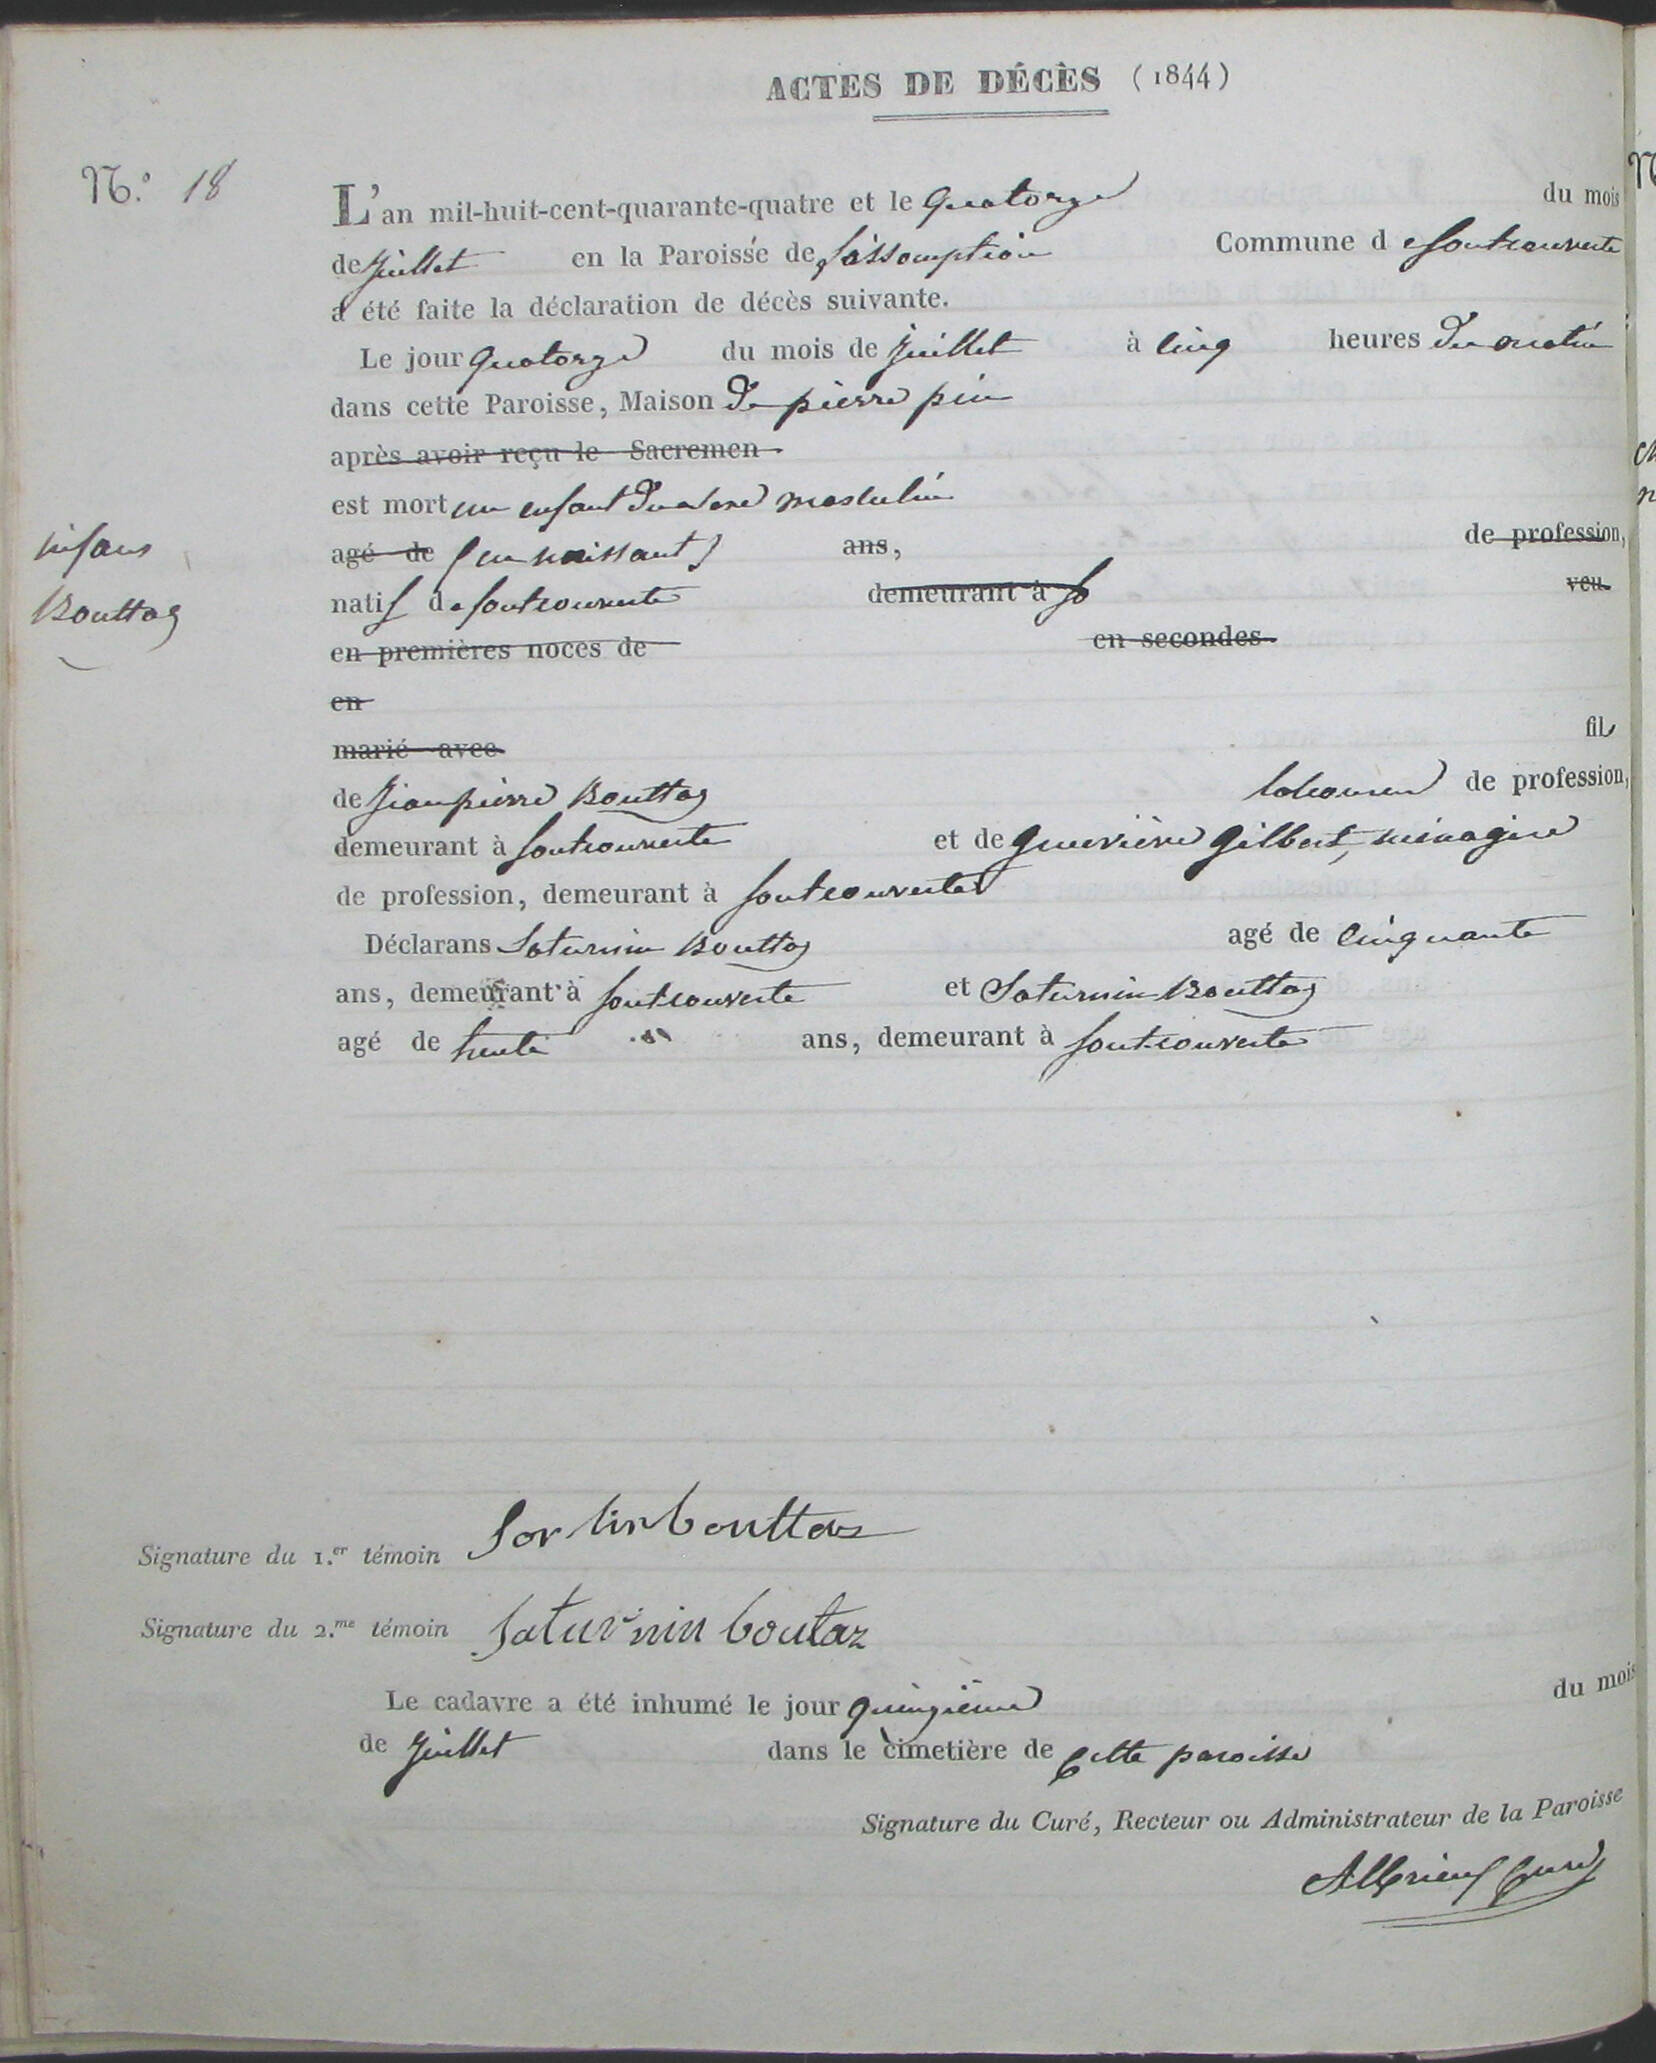 ACTES DE DÉCÈS (1844)
N.° 18
L'an mil-huit-cent-quarante-quatre et le quatorze du mois
de juillet en la Paroisse de l'assomption Commune de fontcouverte
a été faite la déclaration de décès suivante.
Le jour quatorze du mois de juillet à cinq heures du matin
dans cette Paroisse, Maison de pierre pin
après avoir reçu le Sacremen
est mort un enfant du sexe masculin
infans
Bouttaz
agé de (en naissant) ans, de profession,
natif de fontcouverte demeurant à fo veu
en premières noces de en secondes
en
marié avec
fils
de jeanpierre Bouttaz laboureur de profession,
demeurant à fontcouverte et de Geneviève Gilbert, ménagère
de profession, demeurant à fontcouverte
Déclarans Saturnin Bouttaz agé de cinquante
ans, demeurant à fontcouverte et Saturnin Bouttaz
agé de trente ans, demeurant à fontcouverte
Signature du 1.er témoin Sorlin bouttaz
Signature du 2.me témoin Saturnin boutaz
Le cadavre a été inhumé le jour quinzième du mois
de juillet dans le cimetière de cette paroisse
Signature du Curé, Recteur ou Administrateur de la Paroisse
Albrieux Curé